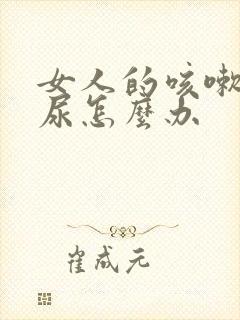 女人的咳嗽
尿怎麼办
崔成元